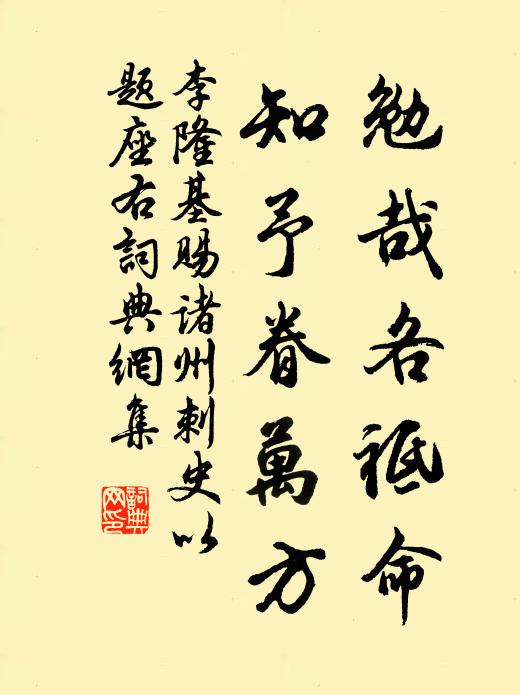 勉哉各祗命
知予眷萬方
李隆基賜诸州刺史以
題座右詞典網集
詞典網印